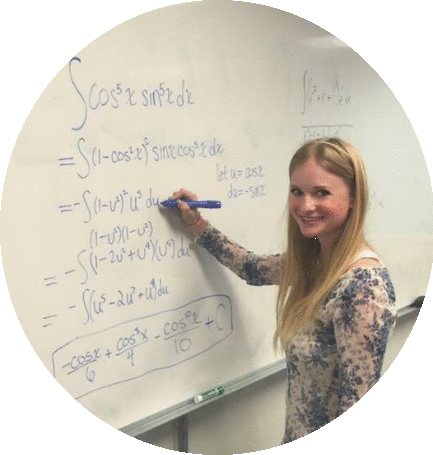 ∫cos⁵x sin⁵x dx
=∫(1-cos²x)² sinx cos⁵x dx
let u = cosx
du = -sinx
=-∫(1-u²)² u⁵ du
(1-u²)(1-u²)
=-∫(1-2u²+u⁴)(u⁵)du
=-∫(u⁵-2u⁷+u⁹)du
-cos⁶x/6 + cos⁸x/4 - cos¹⁰x/10 + C